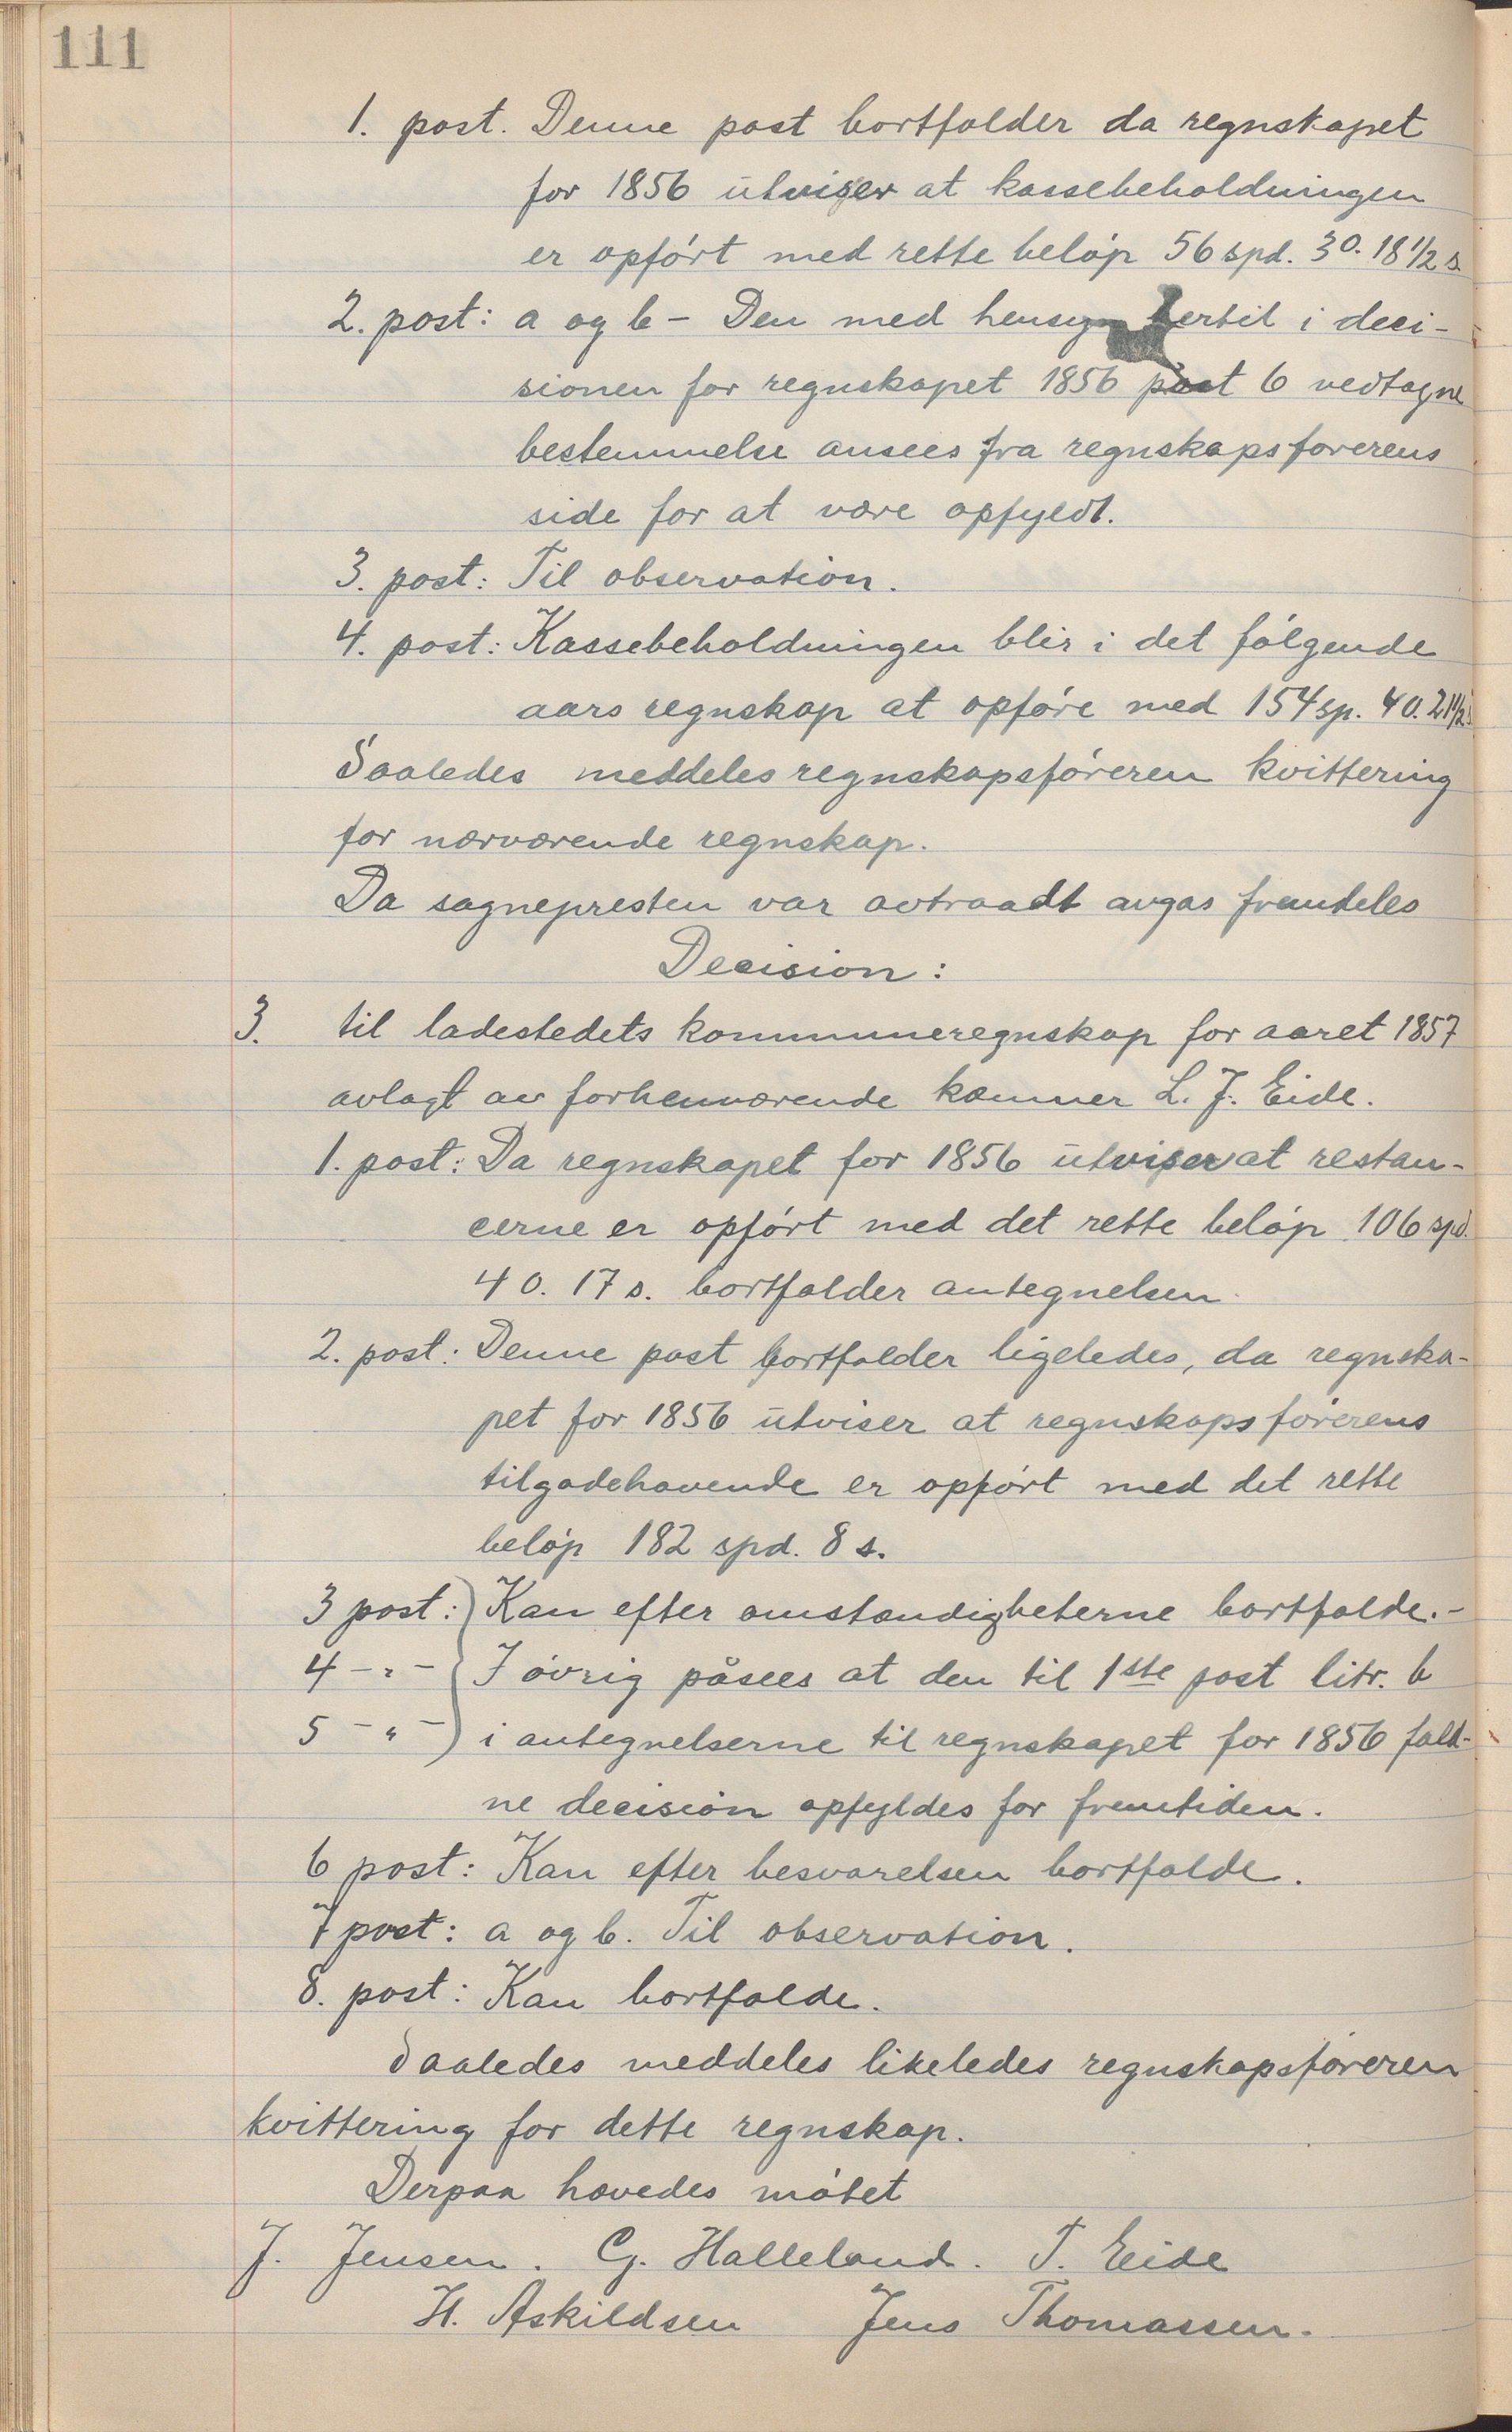 111
1. post. Denne post bortfalder da regnskapet
for 1856 utviser at kassebeholdningen
er opført med rette beløp 56 spd. 3 o. 18 1/2 s.
2. post: a og b - Den med hensyn hertil i deci-
sionen for regnskapet 1856 post 6 vedtagne
bestemmelse ansees fra regnskapsførerens
side for at være opfyldt.
3. post: Til observation.
4. post: Kassebeholdningen blir i det følgende
aars regnskap at opføre med 154 sp. 4 o. 21 1/2 s.
Saaledes meddeles regnskapsføreren kvittering
for nærværende regnskap.
Da sognepresten var avtraadt avgas fremdeles
Decision:
3. til ladestedets kommuneregnskap for aaret 1857
avlagt av forhenværende kæmner L. J. Eide.
1. post: Da regnskapet for 1856 utviser at restan-
cerne er opført med det rette beløp 106 spd.
4 o. 17 s. bortfalder antegnelsen.
2. post: Denne post bortfalder ligeledes, da regnska-
pet for 1856 utviser at regnskapsførerens
tilgodehavende er opført med det rette
beløp 182 spd. 8 s.
3 post: Kan efter omstændigheterne bortfalde.-
4 -"- I øvrig påsees at den til 1ste post litr. b
5 -"- i antegnelserne til regnskapet for 1856 fald-
ne decision opfyldes for fremtiden.
6 post: Kan efter besvarelsen bortfalde.
7 post: a og b. Til observation.
8. post: Kan bortfalde.
Saaledes meddeles likeledes regnskapsføreren
kvittering for dette regnskap.
Derpaa hævedes møtet
J. Jensen. G. Halleland. T. Eide
H. Askildsen Jens Thomassen.